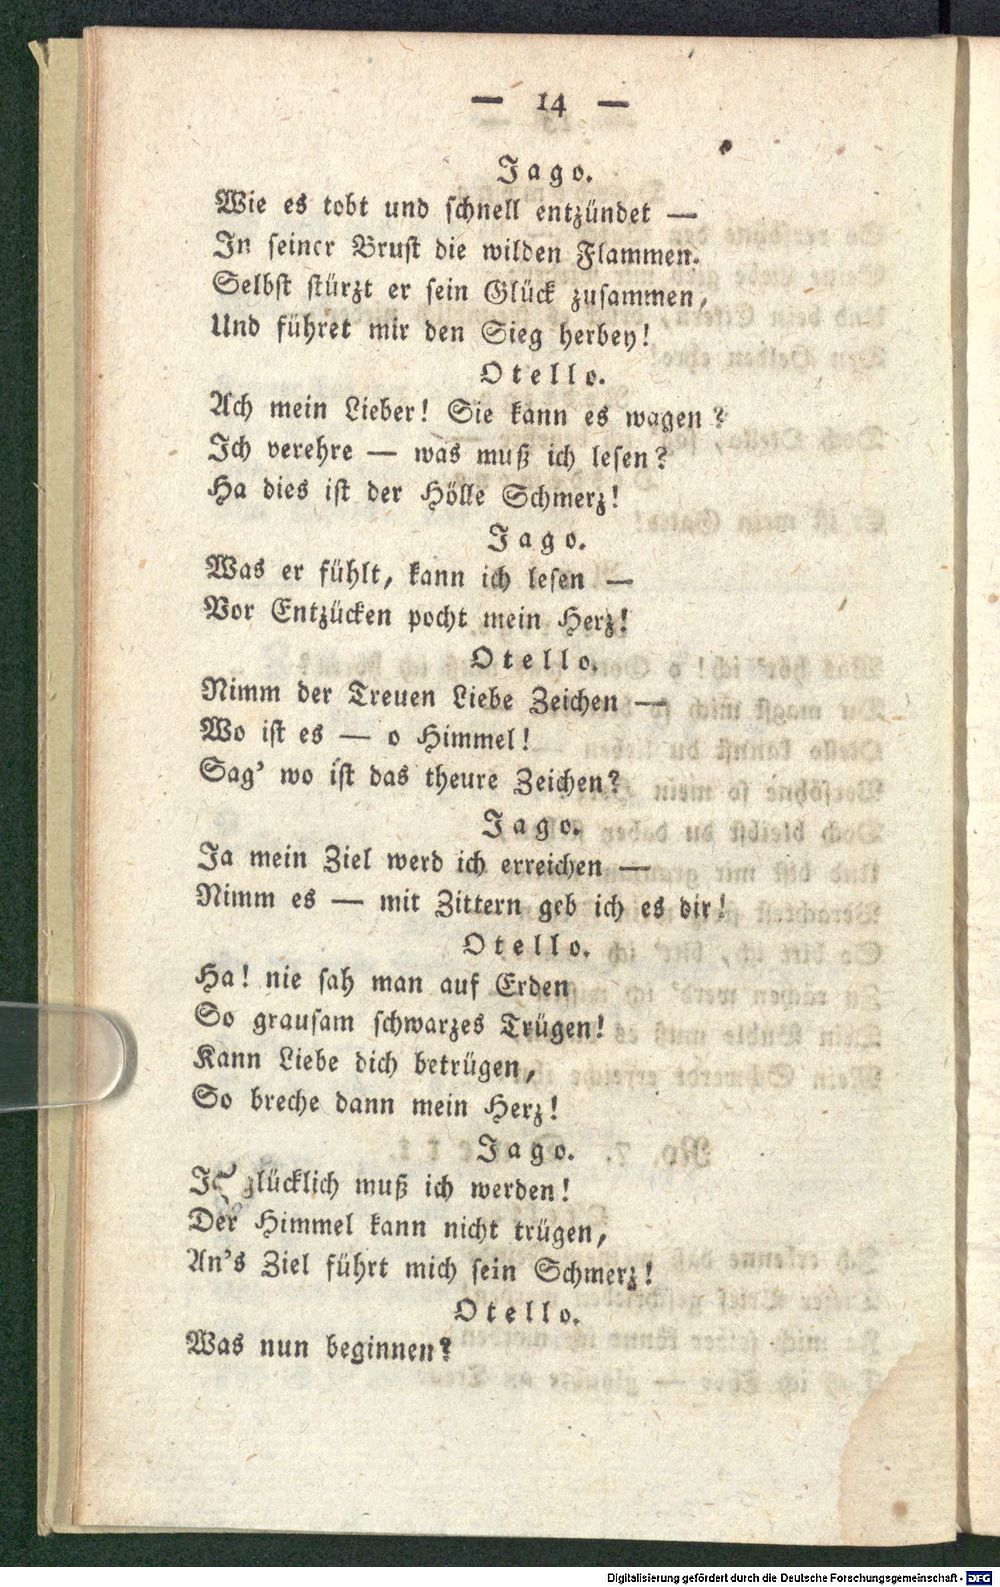 — 14 —
Jago.
Wie es tobt und schnell entzündet —
In seiner Brust die wilden Flammen.
Selbst stürzt er sein Glück zusammen,
Und führet mir den Sieg herbey!
Otello.
Ach mein Lieber! Sie kann es wagen?
Ich verehre — was muß ich lesen?
Ha dies ist der Hölle Schmerz!
Jago.
Was er fühlt, kann ich lesen —
Vor Entzücken pocht mein Herz!
Otello.
Nimm der Treuen Liebe Zeichen —
Wo ist es — o Himmel!
Sag' wo ist das theure Zeichen?
Jago.
Ja mein Ziel werd ich erreichen —
Nimm es — mit Zittern geb ich es dir!
Otello.
Ha! nie sah man auf Erden
So grausam schwarzes Trügen!
Kann Liebe dich betrügen,
So breche dann mein Herz!
Jago.
Ja glücklich muß ich werden!
Der Himmel kann nicht trügen,
An's Ziel führt mich sein Schmerz!
Otello.
Was nun beginnen?
Digitalisierung gefördert durch die Deutsche Forschungsgemeinschaft - DFG